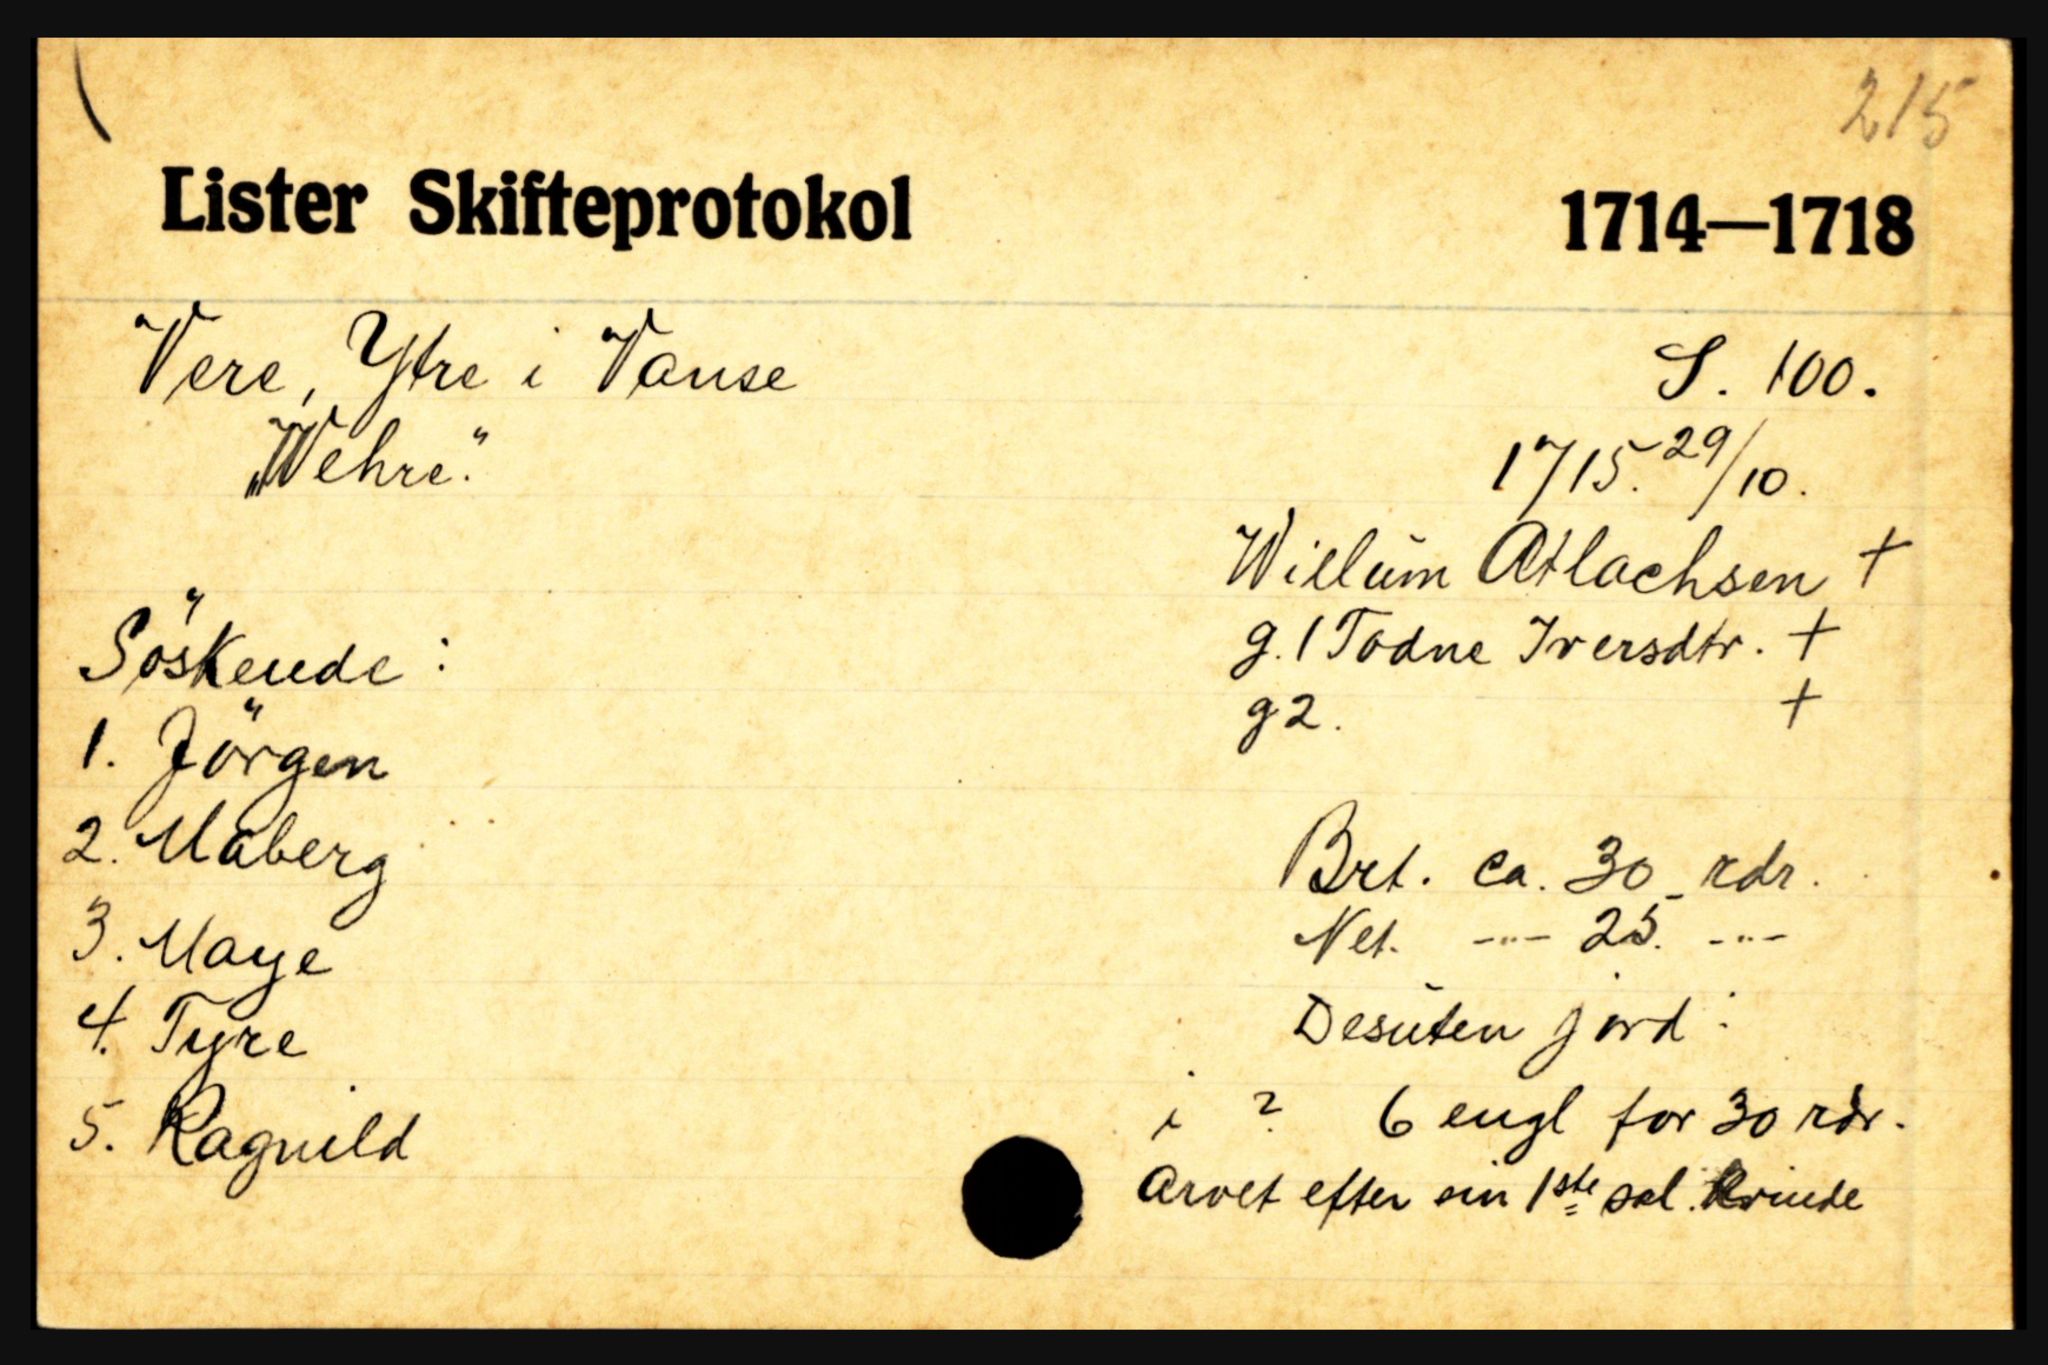 215
Lister Skifteprotokol 1714—1718
Vere, Ytre i Vanse S. 100.
„Wehre." 1715. 29/10.
Willum Atlachsen +
Söskende : g. 1 Todne Iversdtr. +
g 2. +
1. Jörgen
2. Maberg Brt. ca. 30 rdr.
3. Maye Net. -"- 25. -"-
4. Tyre Desuten jord :
5. Ragnild i ? 6 engl for 30 rdr.
Arvet efter sin 1ste sal. Kvinde